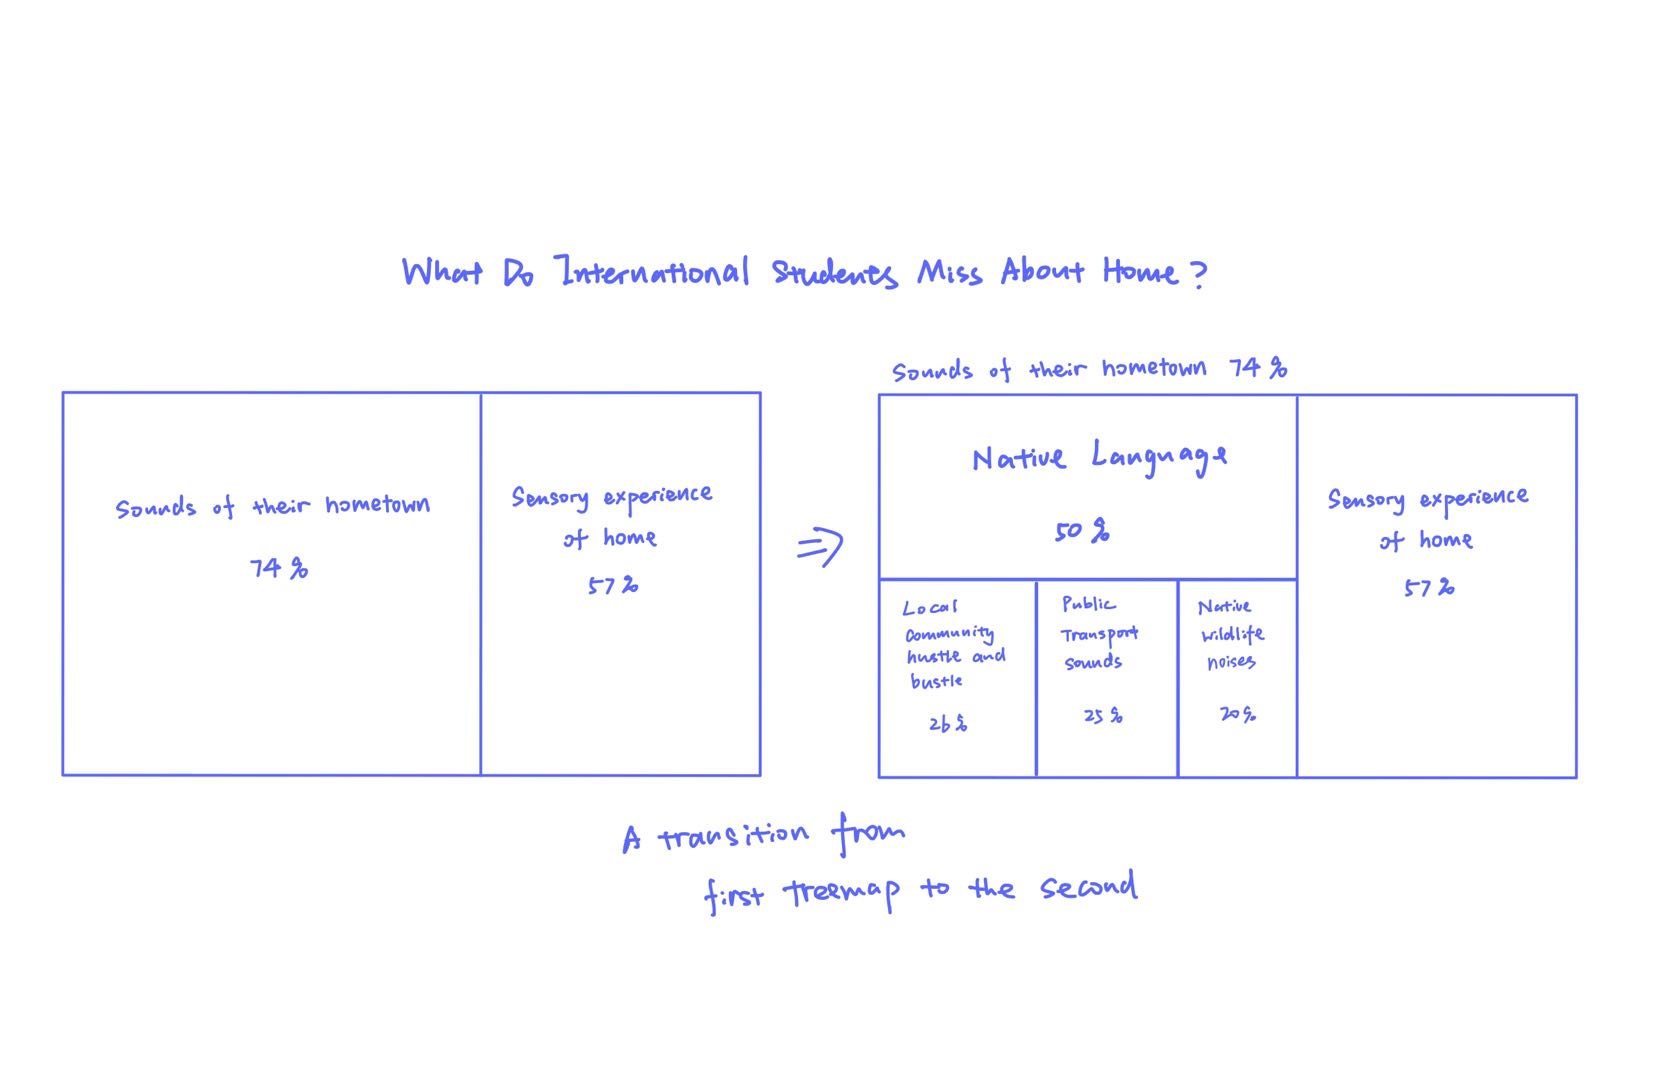 What Do International Students Miss About Home?
Sounds of their hometown
74%
Sensory experience
of home
57%
⇒
Sounds of their hometown 74%
Native Language
50%
Local
Community
hustle and
bustle
26%
Public
Transport
sounds
25%
Native
wildlife
noises
20%
Sensory experience
of home
57%
A transition from
first treemap to the second